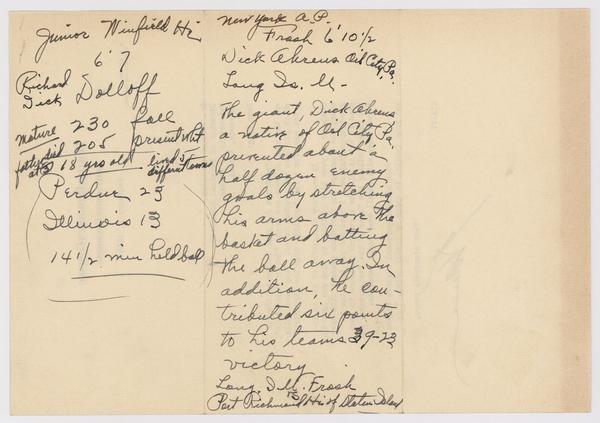 Junior Winfield Hi
6'7
Richard
Dick Dolloff
mature 230 fall
205 present wht
father died
at 18 yrs old lived 3
different towns
Perdue 23
Illinois 13
14 1/2 min held ball
New York A.P.
Frosh 6' 10 1/2
Dick Ahrens Oil City, Pa.
Long Is. U -
The giant, Dick Ahrens
a native of Oil City Pa.
prevented about a
half dozen enemy
goals by stretching
his arms above the
basket and batting
the ball away. In
addition, he con-
tributed six points
to his teams 39-23
victory
Long. I U. Frosh
Port Richmond Hi of Staten Island